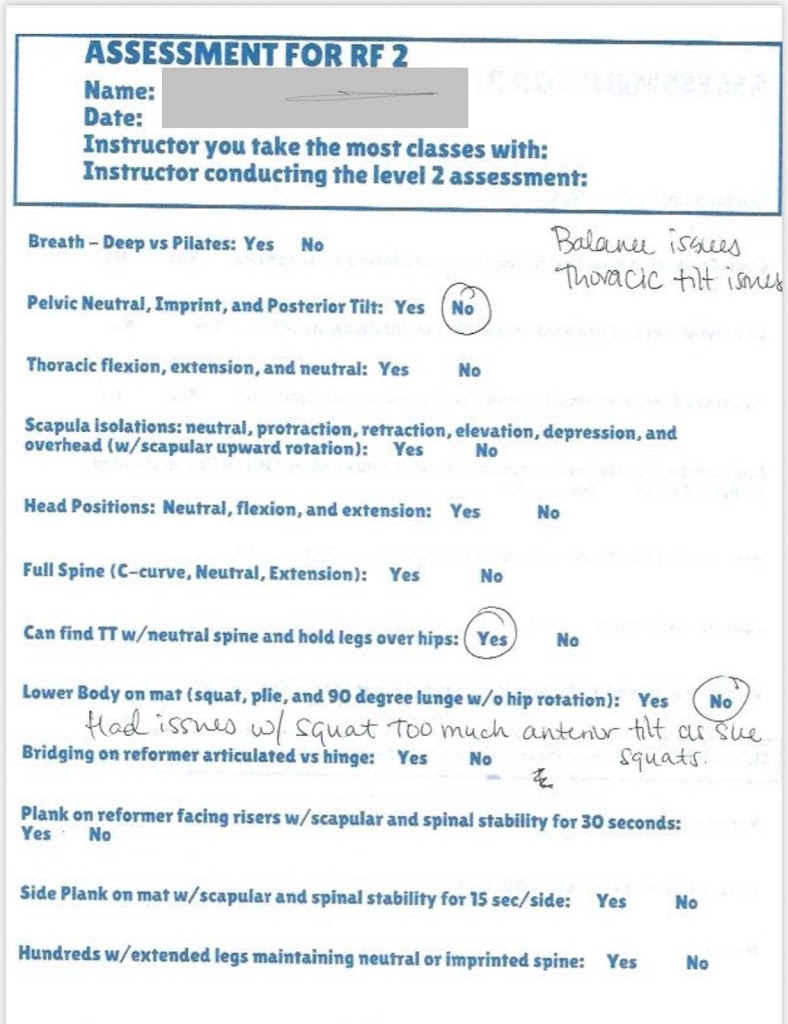 ASSESSMENT FOR RF 2
Name:
Date:
Instructor you take the most classes with:
Instructor conducting the level 2 assessment:
Balance issues
Thoracic tilt issues
Breath – Deep vs Pilates: Yes No
Pelvic Neutral, Imprint, and Posterior Tilt: Yes No
Thoracic flexion, extension, and neutral: Yes No
Scapula isolations: neutral, protraction, retraction, elevation, depression, and
overhead (w/scapular upward rotation): Yes No
Head Positions: Neutral, flexion, and extension: Yes No
Full Spine (C-curve, Neutral, Extension): Yes No
Can find TT w/neutral spine and hold legs over hips: Yes No
Lower Body on mat (squat, plie, and 90 degree lunge w/o hip rotation): Yes No
Had issues w/ squat too much anterior tilt as she
squats.
Bridging on reformer articulated vs hinge: Yes No
Plank on reformer facing risers w/scapular and spinal stability for 30 seconds:
Yes No
Side Plank on mat w/scapular and spinal stability for 15 sec/side: Yes No
Hundreds w/extended legs maintaining neutral or imprinted spine: Yes No